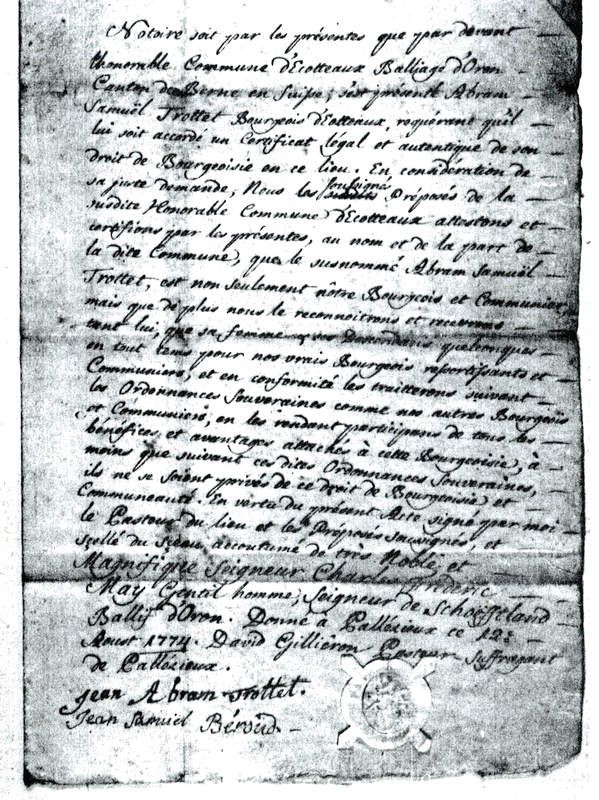 Notoire soit par les présentes que par devant
l'honorable Commune d'Ecotteaux Balliage d'Oron
Canton de Berne en Suisse; s'est présenté Abram
Samuël Trottet Bourgeois d'Ecotteaux, requérant qu'il
lui soit accordé un Certificat légal et autentique de son
droit de Bourgeoisie en ce lieu. En considération de
sa juste demande, Nous les soussignés Préposés de la
susdite Honorable Commune d'Ecotteaux attestons et
certifions par les présentes, au nom et de la part de
la dite Commune, que le susnommé Abram Samuël
Trottet, est non seulement nôtre Bourgeois et Communier,
mais que de plus nous le reconnoitrons et recevrons
tant lui, que sa femme et ses Descendans quelconques
en tout tems pour nos vrais Bourgeois ressortissants et
Communiers, et en conformité les traitterons suivant
les Ordonnances Souveraines comme nos autres Bourgeois
et Communiers, en les rendant participans de tous les
bénéfices et avantages attachés à cette Bourgeoisie, à
moins que suivant ces dites Ordonnances Souveraines,
ils ne se soient privés de ce droit de Bourgeoisie et
Communeauté. En vertu du présent Acte signé par moi
le Pasteur du lieu et les Préposés Sousignés, et
scellé du Sceau accoutumé de très Noble, et
Magnifique Seigneur Charles Frideric
May Gentil homme, Seigneur de Schöfftland
Ballif d'Oron. Donné à Pallézieux ce 12e
Aoust 1774. David Gilliéron Pasteur Suffragant
de Pallézieux.
Jean Abram Trottet.
Jean Samuel Béroud